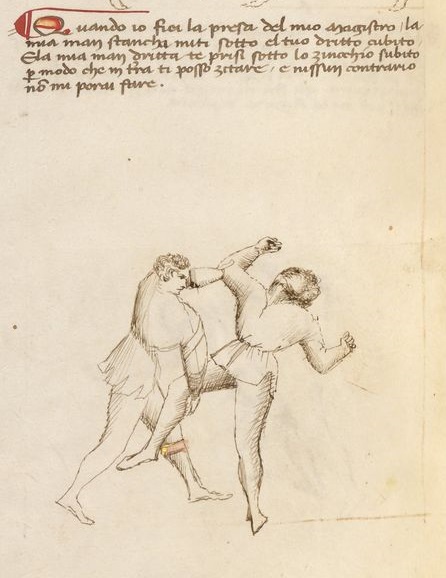 Quando io fici la presa del mio magistro, la
mia man stancha miti sotto el tuo dritto cubito,
E la mia man dritta te prisi sotto lo zinochio subito
per modo che in tra ti posso zitare, e nissun contrario
nō mi porai fare.